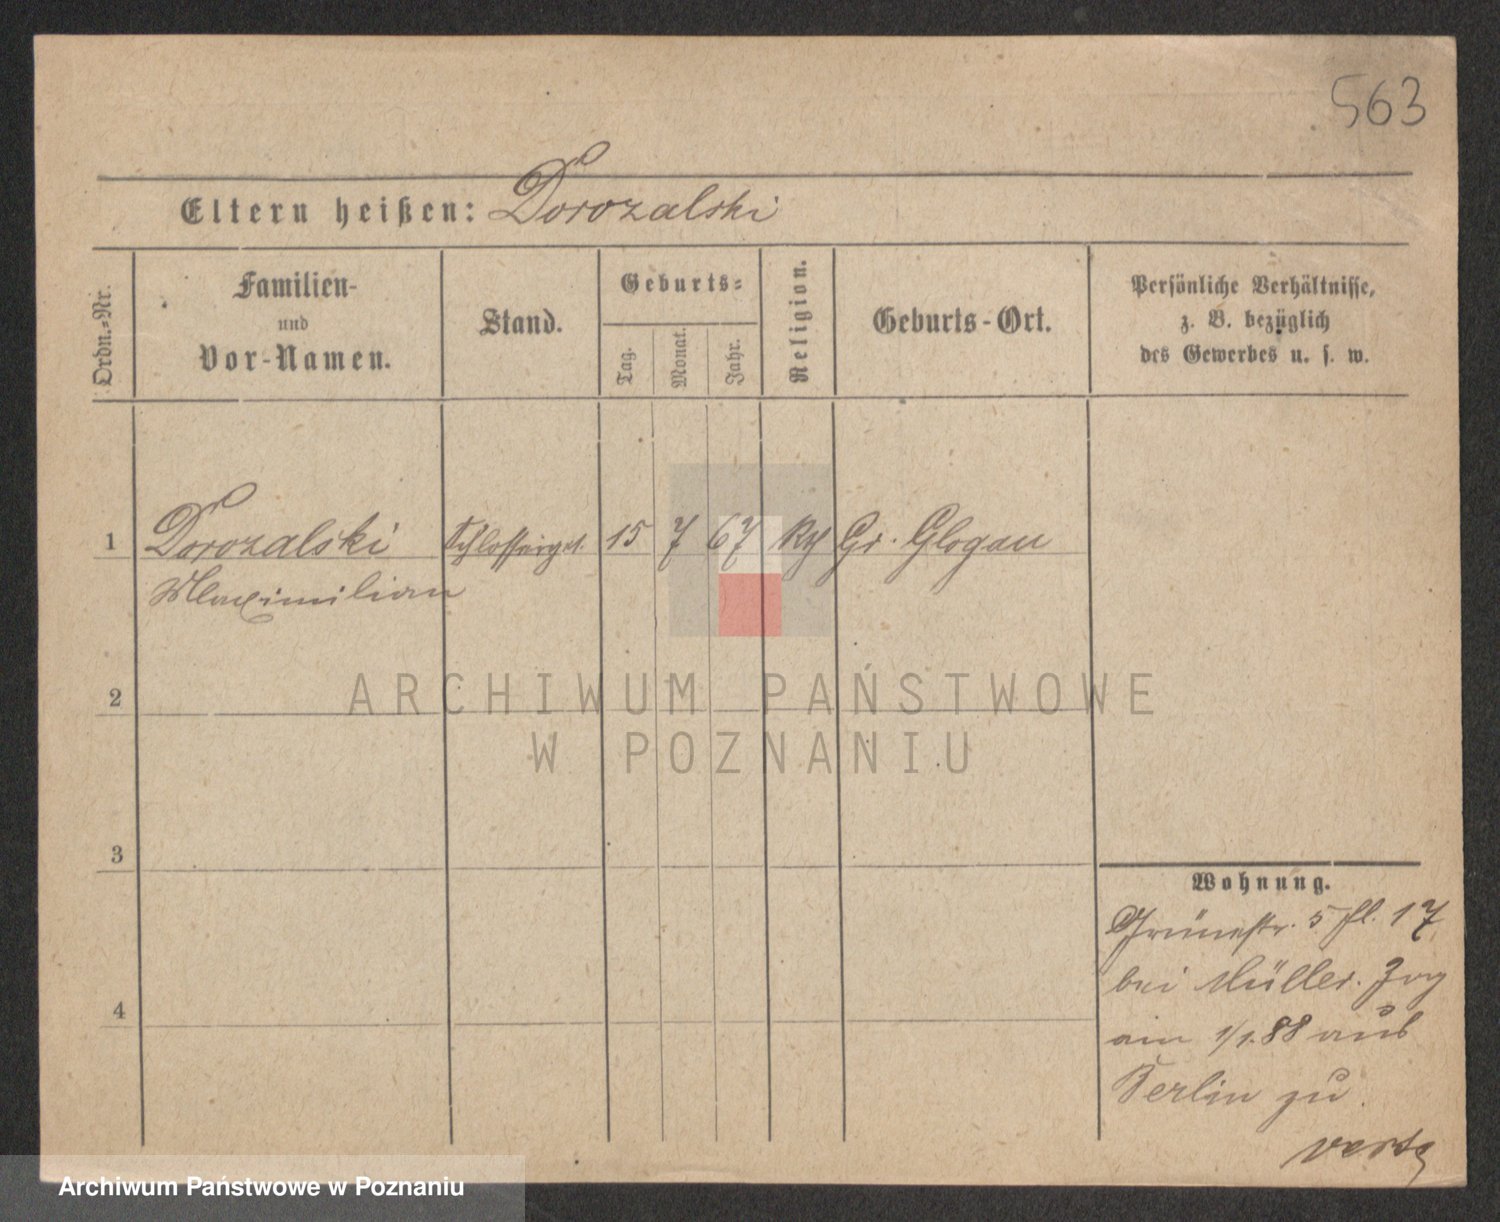 563
Eltern heißen: Dorozalski
Ordn.-Nr.
Familien-
und
Vor-Namen.
Stand.
Geburts-
Tag.
Monat.
Jahr.
Religion.
Geburts-Ort.
Persönliche Verhältnisse,
z. B. bezüglich
des Gewerbes u. s. w.
1 Dorozalski Schlosserges. 15 7 67 Kth Gr. Glogau
Maximilian
2
ARCHIWUM PAŃSTWOWE
W POZNANIU
3
4
Wohnung.
Grünestr. 5 Hl. 17
bei Müller. Zog
am 1/1.88 aus
Berlin zu
verte
Archiwum Państwowe w Poznaniu